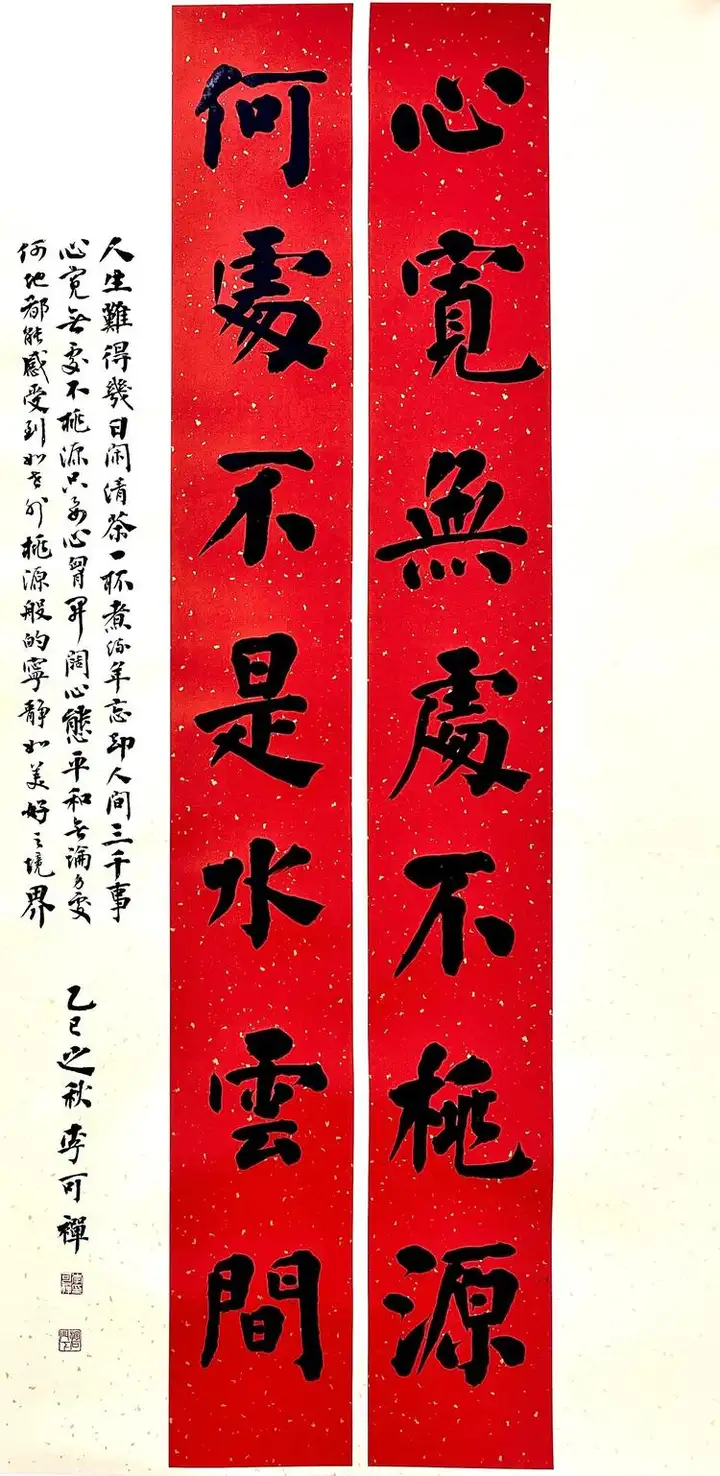 心寬無處不桃源
何處不是水雲間
人生難得幾日闲清茶一杯煮流年忘却人间三千事
心宽无处不桃源只要心胃开阔心態平和无論身处
何地都能感受到如世外桃源般的寧靜和美好之境界
乙巳之秋李可禪